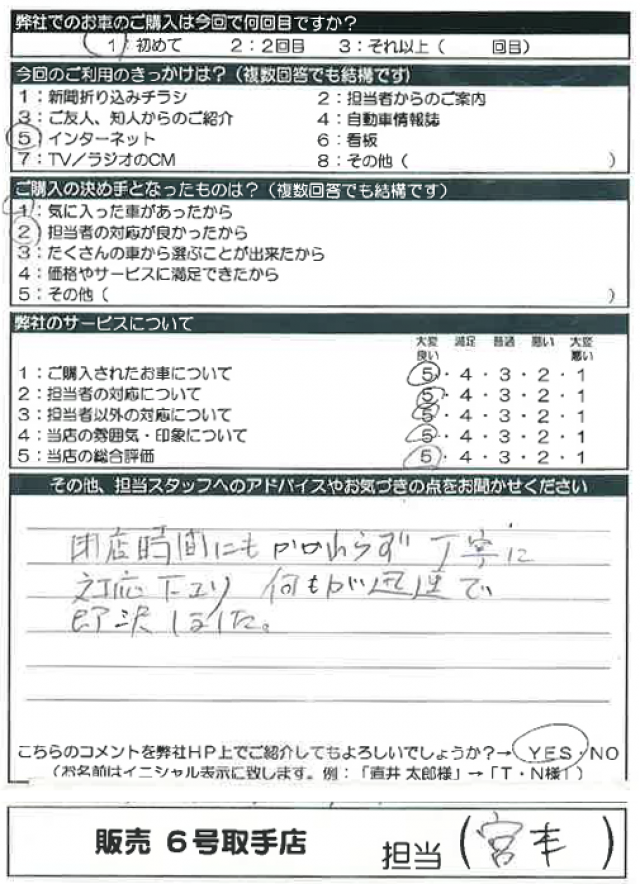 弊社でのお車のご購入は今回で何回目ですか？
1：初めて　2：2回目　3：それ以上（　　回目）
今回のご利用のきっかけは？（複数回答でも結構です）
1：新聞折り込みチラシ　2：担当者からのご案内
3：ご友人、知人からのご紹介　4：自動車情報誌
5：インターネット　6：看板
7：TV／ラジオのCM　8：その他（　　）
ご購入の決め手となったものは？（複数回答でも結構です）
1：気に入った車があったから
2：担当者の対応が良かったから
3：たくさんの車から選ぶことが出来たから
4：価格やサービスに満足できたから
5：その他（　　）
弊社のサービスについて
大変良い　満足　普通　悪い　大変悪い
1：ご購入されたお車について　5・4・3・2・1
2：担当者の対応について　5・4・3・2・1
3：担当者以外の対応について　5・4・3・2・1
4：当店の雰囲気・印象について　5・4・3・2・1
5：当店の総合評価　5・4・3・2・1
その他、担当スタッフへのアドバイスやお気づきの点をお聞かせください
閉店時間にもかかわらず丁寧に
対応下さり　何もが迅速で
即決しました。
こちらのコメントを弊社HP上でご紹介してもよろしいでしょうか？→　YES・NO
（お名前はイニシャル表示に致します。例：「直井 太郎様」→「T・N様」）
販売 6号取手店　担当（宮本）